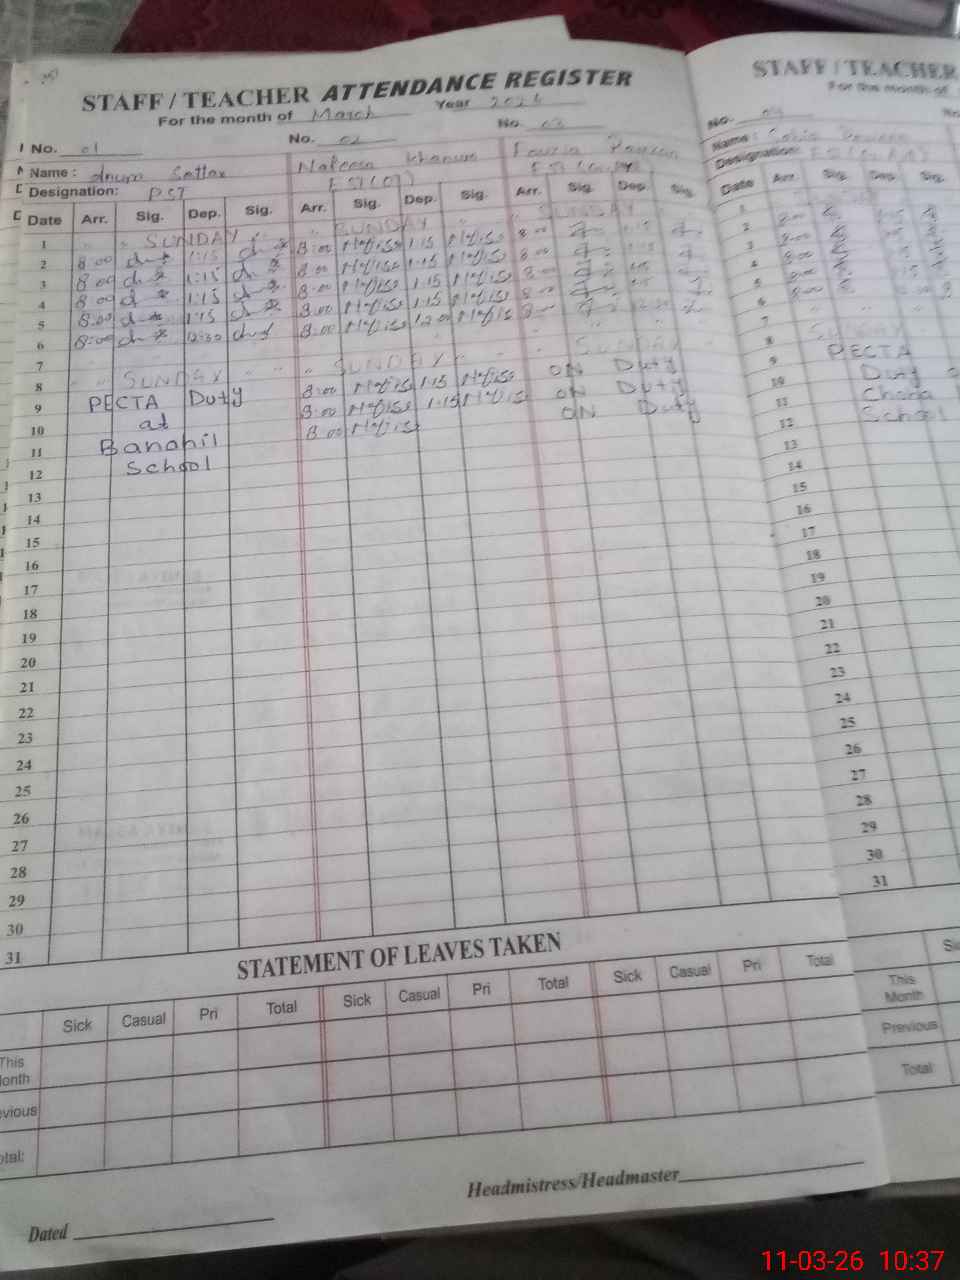 STAFF / TEACHER ATTENDANCE REGISTER
For the month of March Year 2026
No. 01 No. 02 No. 03
Name : Sattar Nafeesa Khanum Fouzia
Designation: PST EST
Date Arr. Sig. Dep. Sig. Arr. Sig. Dep. Sig. Arr. Sig. Dep. Sig.
1 " " SUNDAY " SUNDAY " SUNDAY
2 8:00 1:15 8:00 Nafisa 1:15 Nafisa 8:00 1:15
3 8:00 1:15 8:00 Nafisa 1:15 Nafisa 8:00 1:15
4 8:00 1:15 8:00 Nafisa 1:15 Nafisa 8:00 1:15
5 8:00 1:15 8:00 Nafisa 1:15 Nafisa 8:00
6 8:00 12:30 8:00 Nafisa 12:00 Nafisa 8:00 12:30
7
8 " " SUNDAY " " " SUNDAY " " " SUNDAY
9 PECTA Duty 8:00 Nafisa 1:15 Nafisa ON Duty
10 at 8:00 Nafisa 1:15 Nafisa ON Duty
11 Banahil 8:00 Nafisa ON Duty
12 School
13
14
15
16
17
18
19
20
21
22
23
24
25
26
27
28
29
30
31
STATEMENT OF LEAVES TAKEN
Sick Casual Pri Total Sick Casual Pri Total Sick Casual Pri Total
This
onth
evious
otal:
Headmistress/Headmaster
Dated
STAFF / TEACHER
For the month of
No. 04
Name :
Designation:
Date Arr. Sig. Dep. Sig.
1
2 8:00 1:15
3 8:00
4 8:00 1:15
5 8:00 1:15
6 8:00
7
8 SUNDAY
9 PECTA
10 Duty
11
12 School
13
14
15
16
17
18
19
20
21
22
23
24
25
26
27
28
29
30
31
This
Month
Previous
Total
11-03-26 10:37